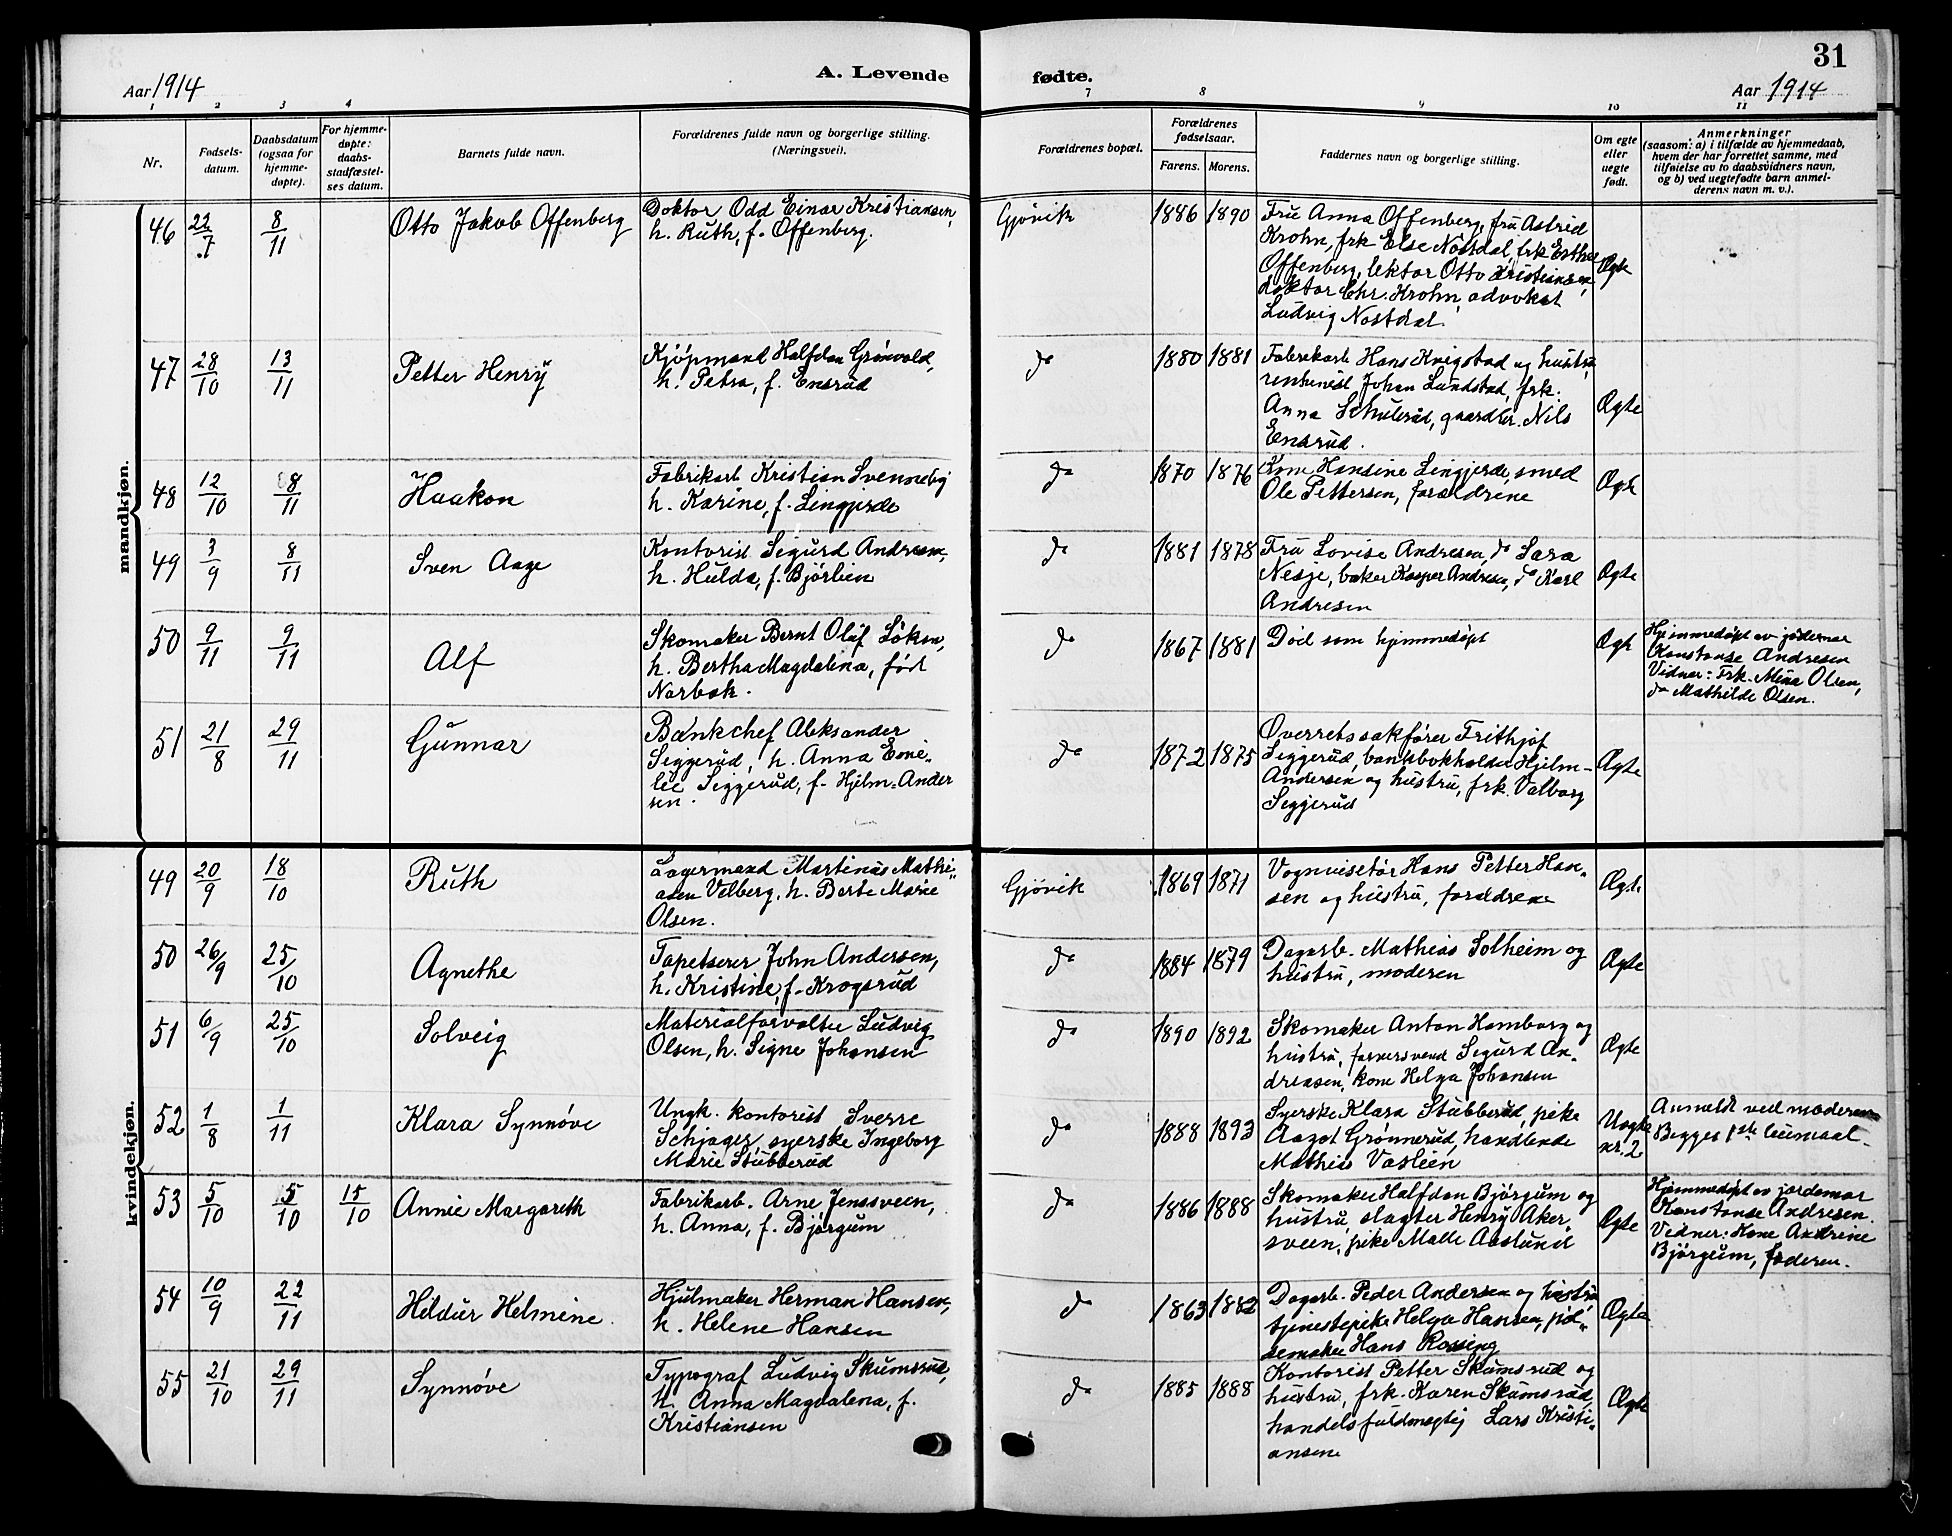 31
Aar 1914
A. Levende
fødte.
Aar 1914
1 2 3 4
7 8 9 10 11
Nr.
Fødsels-
datum.
Daabsdatum
(ogsaa for
hjemme-
døpte).
For hjemme-
døpte:
daabs-
stadfæstel-
ses datum.
Barnets fulde navn.
Forældrenes fulde navn og borgerlige stilling.
(Næringsvei).
Forældrenes bopæl.
Forældrenes
fødselsaar.
Farens. Morens.
Faddernes navn og borgerlige stilling.
Om egte
eller
uegte
født.
Anmerkninger
(saasom: a) i tilfælde av hjemmedaab,
hvem der har forrettet samme, med
tilføielse av to daabsvidners navn,
og b) ved uegtefødte barn anmel-
derens navn m. v.).
mandkjøn.
46 22/7 8/11 Otto Jakob Offenberg
Doktor Odd Einar Kristiansen,
h. Ruth, f. Offenberg.
Gjøvik 1886 1890
Fru Anna Offenberg, fru Astrid
Krohn, frk Else Nöstdal, frk Esther
Offenberg, lektor Otto Kristiansen,
doktor Chr. Krohn, advokat
Ludvig Nöstdal.
Ægte
47 28/10 13/11 Petter Henry
Kjøpmand Halfdan Grønvold,
h. Petra, f. Ensrud
do 1880 1881
Fabrikarb Hans Knigstad og hustru,
rentenist Johan Lundstad, frk.
Anna Schulerud, gaardbr. Nils
Ensrud.
Ægte
48 12/10 8/11 Haakon
Fabrikarb Kristian Svenneby
h. Karine, f. Lingjerde
do 1870 1876
Kone Hansine Lingjerde, smed
Ole Pettersen, forældrene
Ægte
49 3/9 8/11 Sven Aage
Kontorist Sigurd Andresen,
h. Hulda, f. Bjørlien
do 1881 1878
Fru Lovise Andresen, do Sara
Nesje, baker Kasper Andresen, do Karl
Andresen
Ægte
50 9/11 9/11 Alf
Skomaker Bernt Olaf Löken,
h. Bertha Magdalena, född
Narbak.
do 1867 1881
Död som hjemmedöpt
Ægte
Hjemmedöpt av jordemor
Konstanse Andresen
Vidner: Frk. Mina Olsen,
do Mathilde Olsen.
51 21/8 29/11 Gunnar
Bankchef Aleksander
Siggerud, h. Anna Eme-
lie Siggerud, f. Hjelm-Ander
sen.
do 1872 1875
Overretssakfører Frithjof
Siggerud, bankbokholder Hjelm-
Andersen og hustru, frk. Valborg
Siggerud
Ægte
kvindekjøn.
49 20/9 18/10 Ruth
Lagermand Martinus Mathi-
asen Velberg, h. Berte Marie
Olsen.
Gjövik 1869 1871
Vognvisetör Hans Petter Han-
sen og hustru, forældrene
Ægte
50 26/9 25/10 Agnethe
Tapetserer John Andersen,
h. Kristine, f. Krogsrud
do 1884 1879
Dagarb. Mathias Solheim og
hustru, moderen
Ægte
51 6/9 25/10 Solveig
Materialforvalter Ludvig
Olsen, h. Signe Johansen
do 1890 1892
Skomaker Anton Hamborg og
hustru, farversvend Sigurd An-
dreasen, kone Helga Johansen
Ægte
52 1/8 1/11 Klara Synnøve
Ungk. kontorist Sverre
Schjager, syerske Ingeborg
Marie Stubberud
do 1888 1893
Syerske Klara Stubberud, pike
Aagot Grønnerud, handlende
Mathias Vaslien
Uegte
nr. 2
Anmeldt ved moderen
Begges 1ste leiermaal.
53 5/10 5/10 15/10 Annie Margareth
Fabrikarb. Arne Jenssveen,
h. Anna, f. Bjørgum
do 1886 1888
Skomaker Halfdan Bjørgum og
hustru, slagter Henry Aker-
sveen, pike Malle Aaslund
Ægte
Hjemmedöpt av jordemor
Konstanse Andresen.
Vidner: Kone Andrine
Bjørgum, faderen.
54 10/9 22/11 Hildur Helmine.
Hjulmaker Herman Hansen,
h. Helene Hansen
do 1863 1882
Dagarb. Peder Andersen og hustru
tjenestepike Helga Hansen, pöl-
semaker Hans Rossing
Ægte
55 21/10 29/11 Synnøve
Typograf Ludvig Skumsrud,
h. Anna Magdalena, f.
Kristiansen
do 1885 1888
Kontorist Petter Skumsrud og
hustru, frk. Karen Skumsrud,
handelsfuldmegtig Lars Kristi-
ansen
Ægte